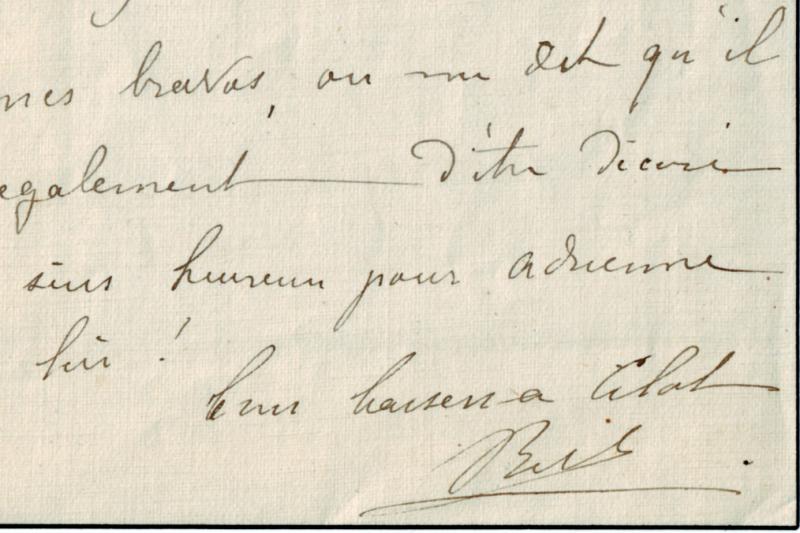 mes bravos, on me dit qu'il
egalement d'être décoré
suis heureux pour adrienne
lui !
bons baisers a